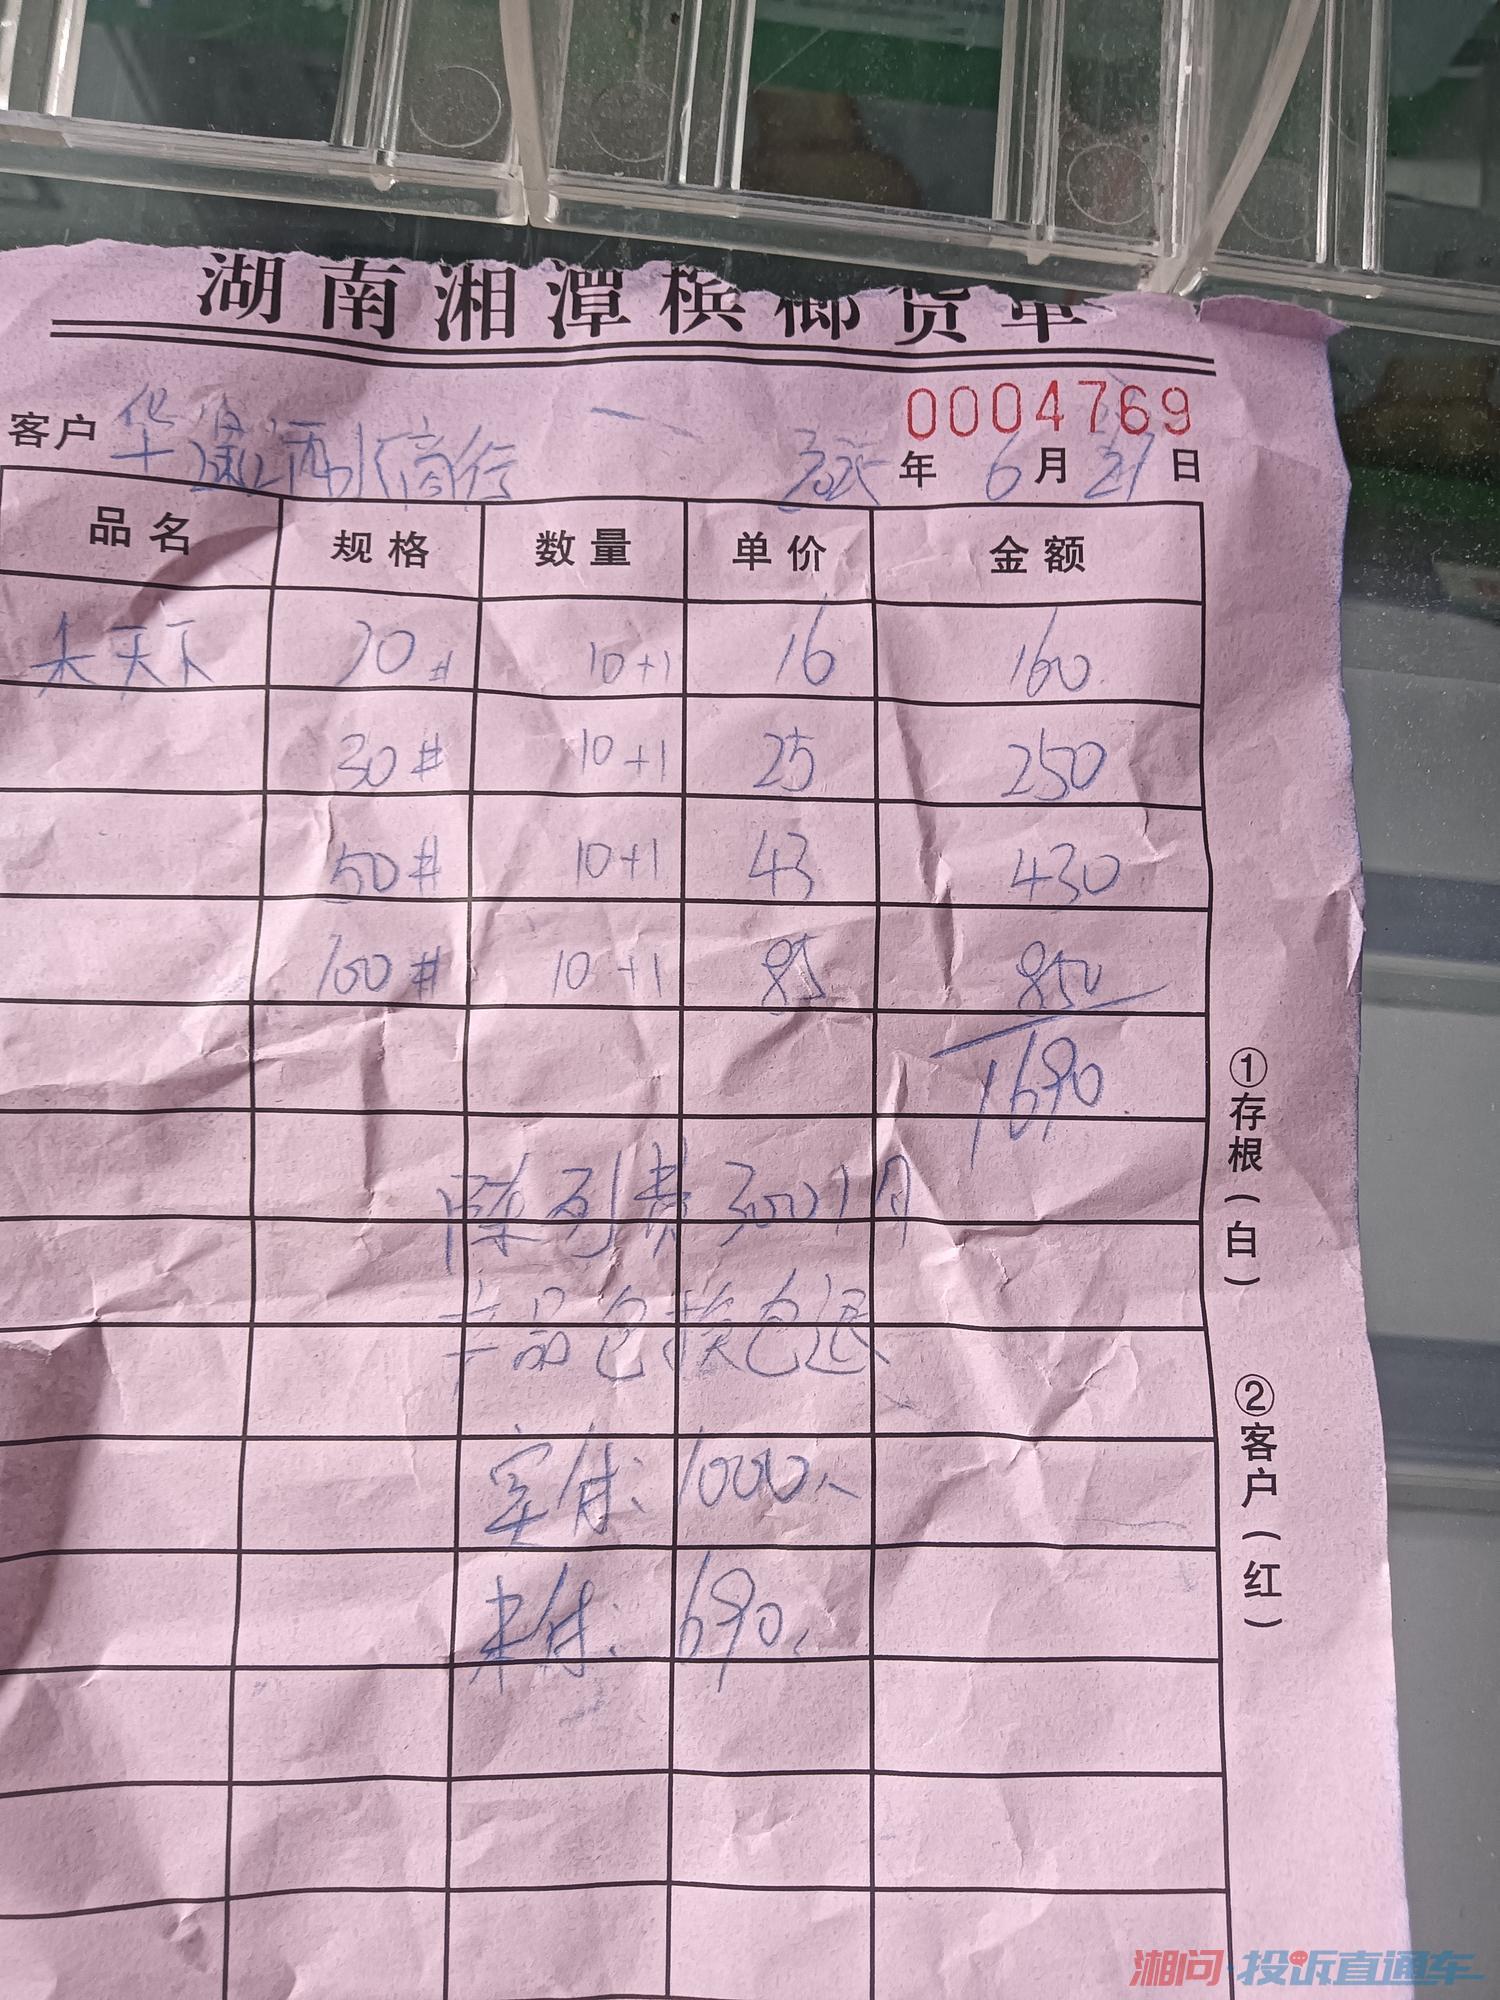 湖南湘潭槟榔货单
0004769
客户 华 酒水商行 年 6 月 日
品名 规格 数量 单价 金额
天下 20# 10+1 16 160
30# 10+1 25 250
50# 10+1 43 430
100# 10+1 85 850
1690
陈列费300/月
产品包换包退
实付:1000
未付:690
①存根(白)
②客户(红)
湘问·投诉直通车